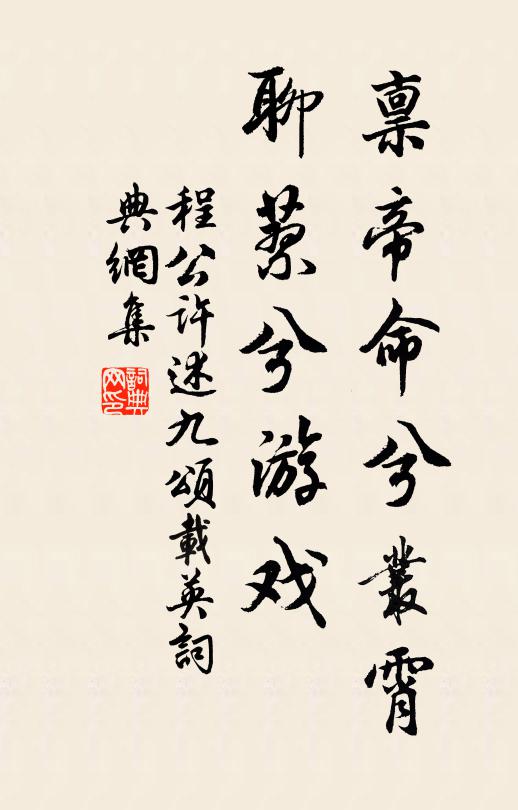 稟帝命兮叢霄
聊蔡兮游戏
程公许述九頌載英詞
典網集
詞典
网印